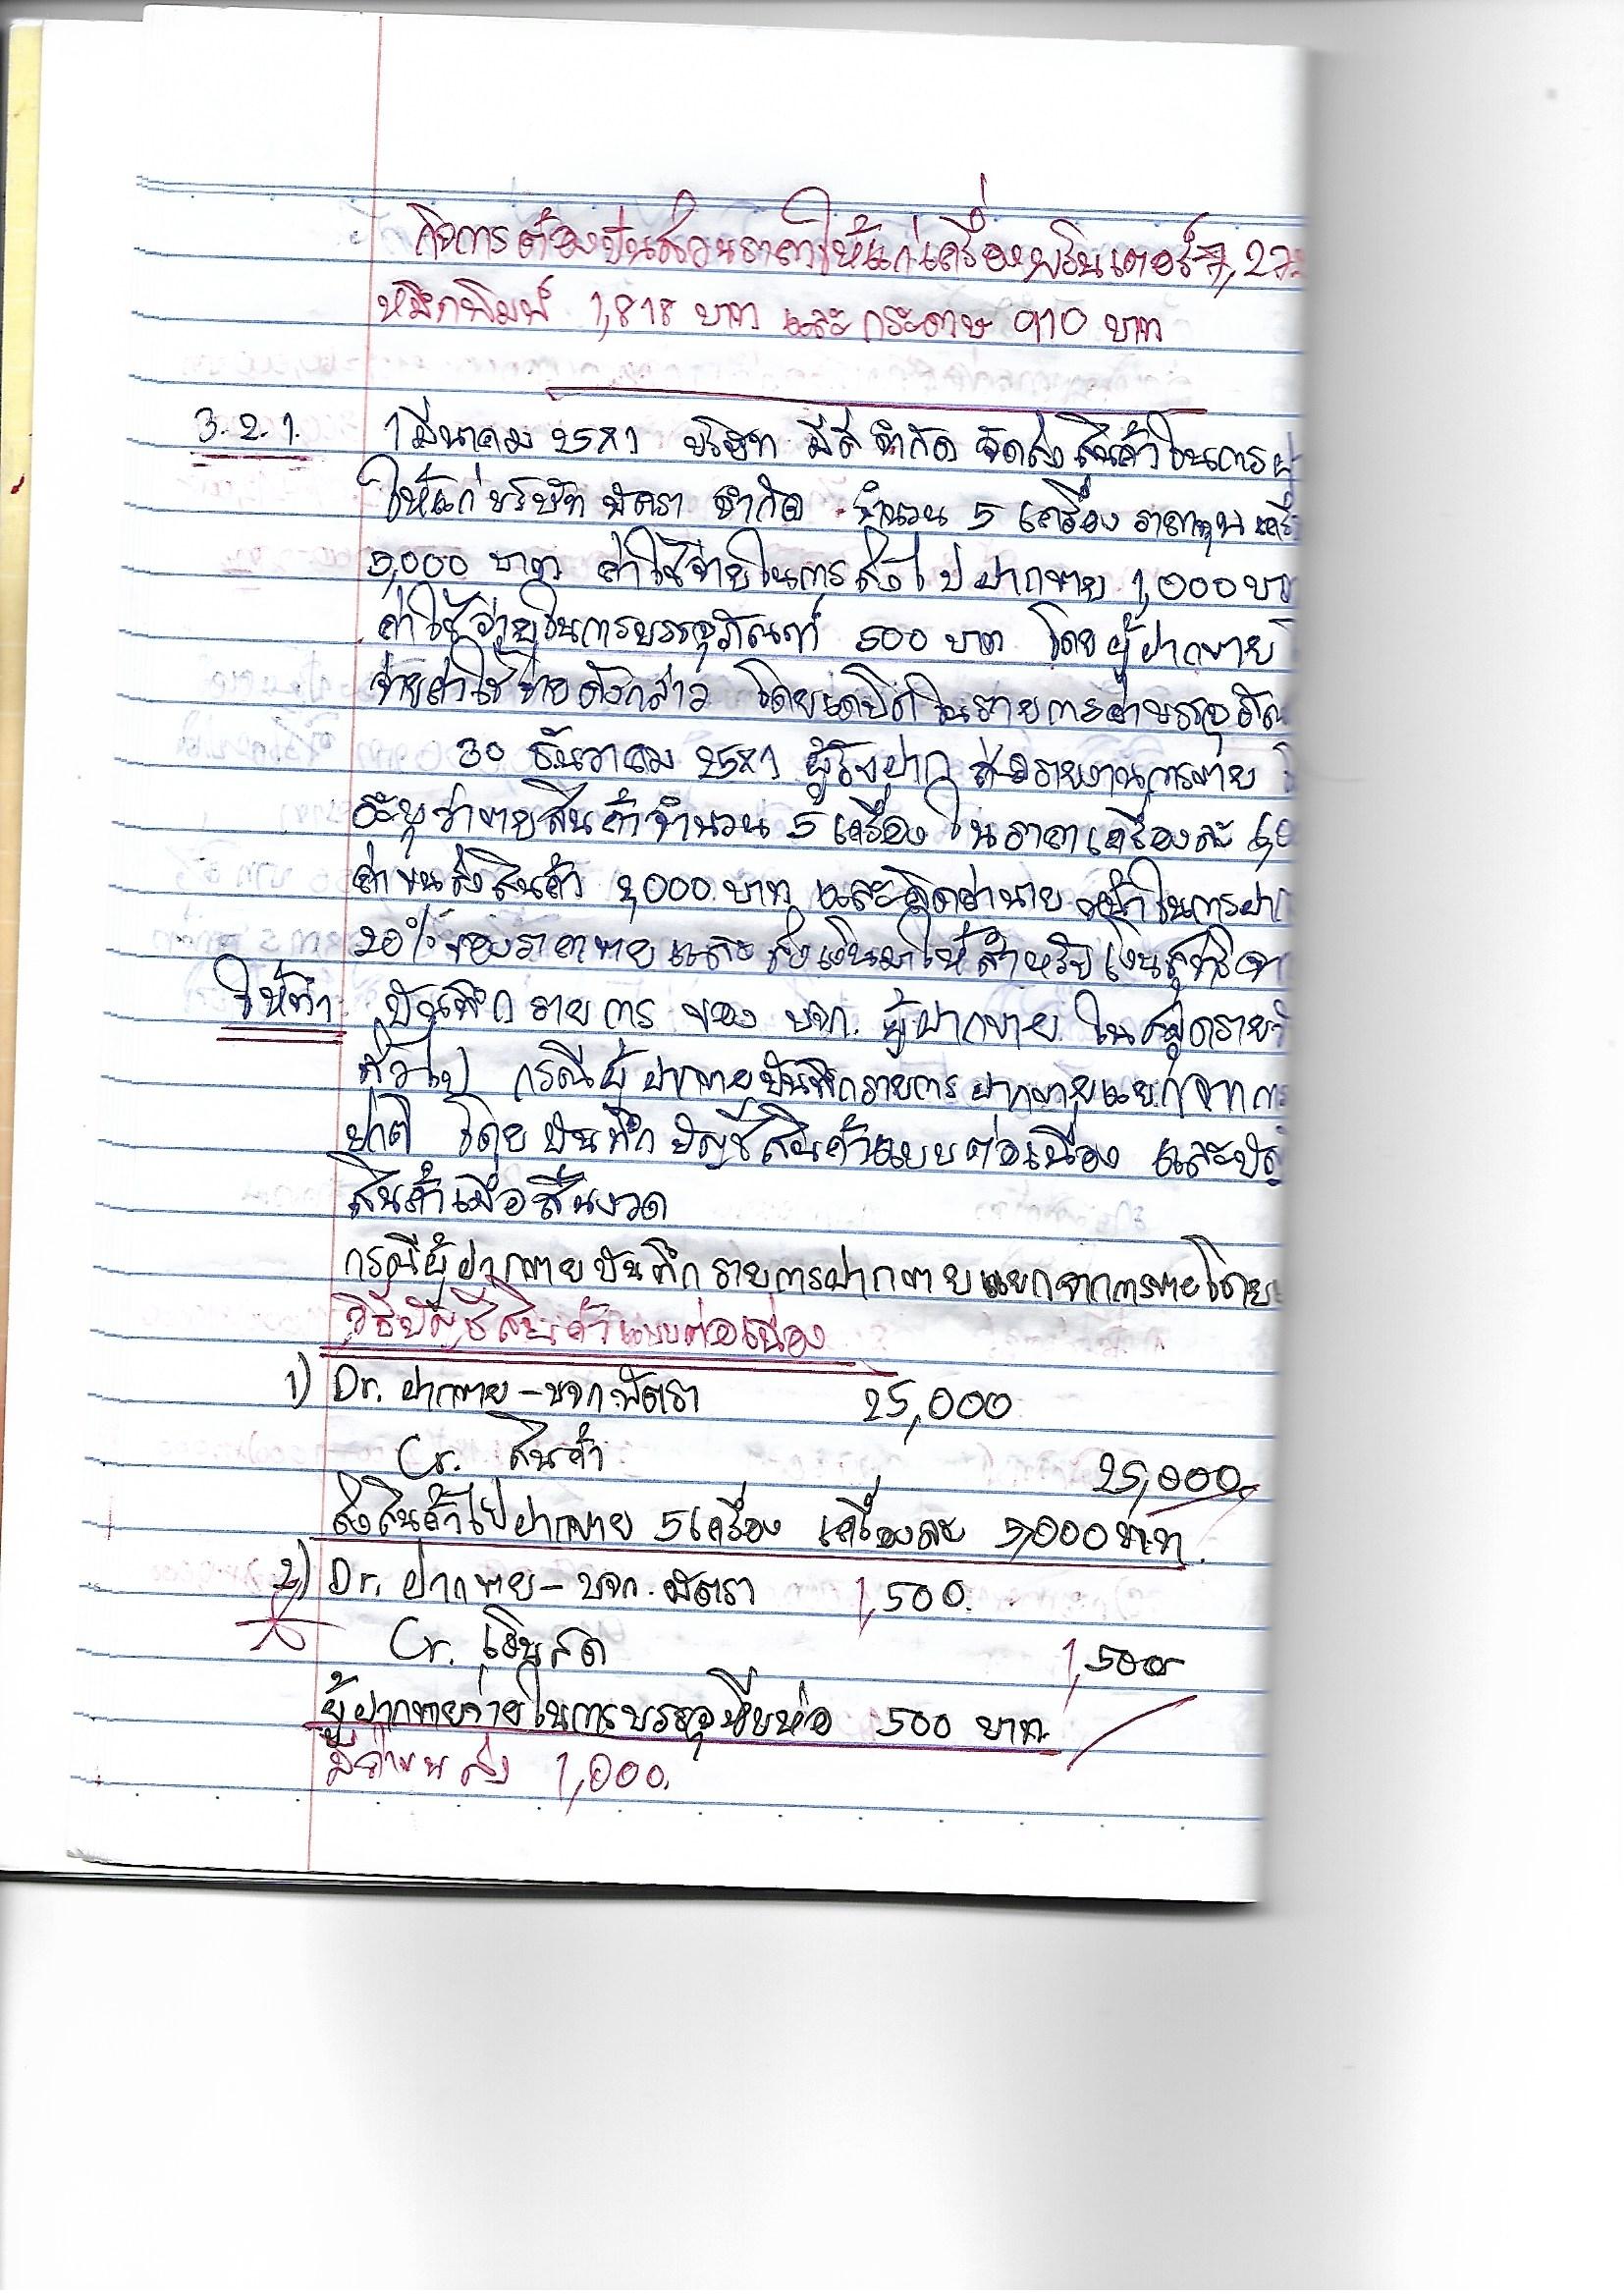 กิจการต้องปันส่วนราคาให้แก่เครื่องพรินเตอร์ 7,27
หมึกพิมพ์ 1,818 บาท และ กระดาษ 910 บาท
3.2.1. 1 มีนาคม 25X1 บริษัท มีดี จำกัด จัดส่งสินค้าในการ
ให้แก่บริษัท พัตรา จำกัด จำนวน 5 เครื่อง ราคาทุน
5,000 บาท ค่าใช้จ่ายในการส่งไปฝากขาย 1,000 บา
ค่าใช้จ่ายในการบรรจุภัณฑ์ 500 บาท โดยผู้ฝากขาย
จ่ายค่าใช้จ่ายดังกล่าว โดยเดบิตในรายการค่าบรรจุภัณ
30 ธันวาคม 25X1 ผู้รับฝาก ส่งรายงานการขาย
ระบุว่าขายสินค้าจำนวน 5 เครื่อง ในราคาเครื่องละ
ค่าขนส่งสินค้า 2,000 บาท และคิดค่านายหน้าในการฝา
20% ของราคาขาย และส่งเงินมาให้สำหรับเงินสุทธิจา
ให้ทำ บันทึกรายการ ของ บจก. ผู้ฝากขาย ในสมุดรายวั
ทั่วไป กรณีผู้ฝากขายบันทึกรายการฝากขายแยกจากกา
ปกติ โดยบันทึกบัญชีสินค้าแบบต่อเนื่อง และบัญ
สินค้าเมื่อสิ้นงวด
กรณีผู้ฝากขายบันทึกรายการฝากขายแยกจากการขายโดย
วิธีบัญชีสินค้าแบบต่อเนื่อง
1) Dr. ฝากขาย - บจก.พัตรา 25,000
Cr. สินค้า 25,000
ส่งสินค้าไปฝากขาย 5 เครื่อง เครื่องละ 5,000 บาท.
2) Dr. ฝากขาย - บจก. พัตรา 1,500
Cr. เงินสด 1,500
ผู้ฝากขายจ่ายในการบรรจุหีบห่อ 500 บาท
มีค่าขนส่ง 1,000.